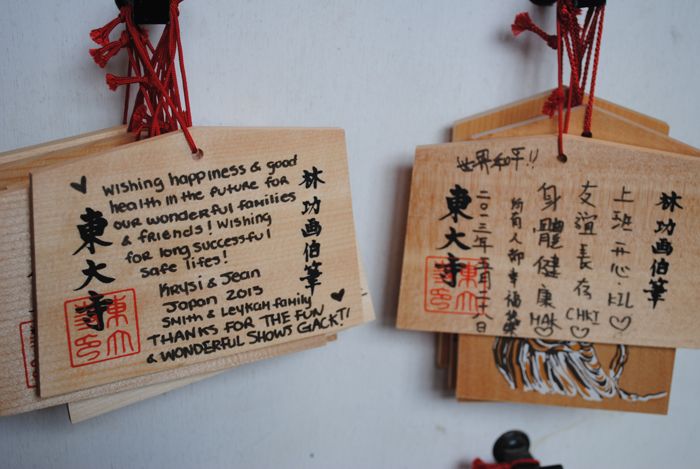 Wishing happiness & good
health in the future for
our wonderful families
& friends! Wishing
for long successful
safe lifes!
Krysi & Jean
Japan 2013
Smith & Leykam family
THANKS FOR THE FUN
& WONDERFUL SHOWS GACKT!
林功画伯筆
東大寺
東大
寺印
世界和平!!
林功画伯筆
上班开心·KIL
友誼長存 CHKI
身體健康 MAK
所有人都幸福
二〇一三年五月二十八日
東大寺